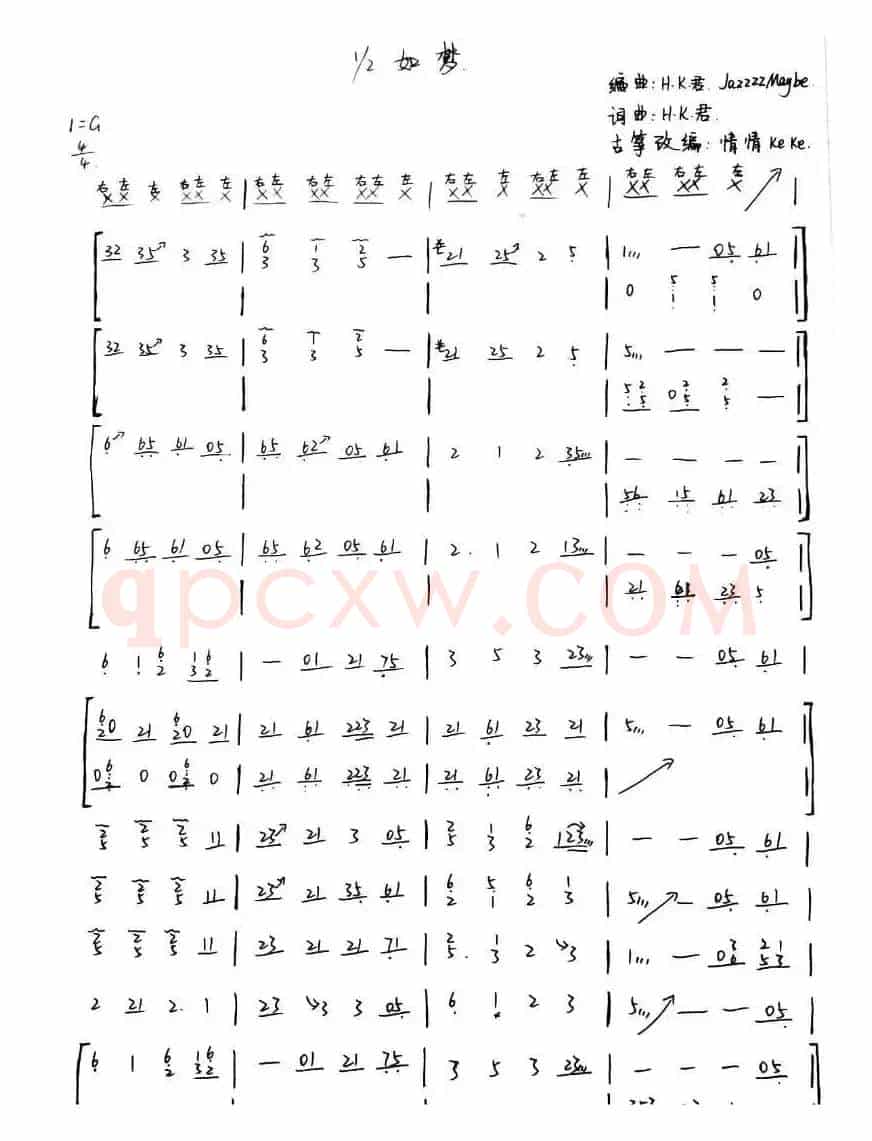 1/2 如梦.
编曲:H.K.君. JazzzzMaybe.
词曲:H.K.君.
古筝改编:情情KeKe.
1=G
4/4
右左 左 右左 左 | 右左 右左 右左 左 | 右左 左 右左 左 | 右左 右左 左 |
XX X XX X | XX XX XX X | XX X XX X | XX XX X ↗ |
32 35↗ 3 35 | 6/3 1/3 2/5 — | 21 25↗ 2 5 | 1,,, — 05 61 |
0 5/1 5/1 0
32 35↗ 3 35 | 6/3 1/3 2/5 — | 21 25 2 5 | 5,,, — — — |
5 2/5 0 2/5 2/5 —
6↗ 65 61 05 | 65 62↗ 05 61 | 2 1 2 35,,, | — — — — |
56 15 61 23
6 65 61 05 | 65 62 05 61 | 2. 1 2 13,,, | — — — 05 |
21 61 23 5
qpcxw.COM
6 1 6/2 1/3 6/2 | — 01 21 75 | 3 5 3 23,,, | — — 05 61 |
6/2 0 21 6/2 0 21 | 21 61 223 21 | 21 61 23 21 | 5,,, — 05 61 |
0 6/2 0 0 6/2 0 | 21 61 223 21 | 21 61 23 21 | ↗
2/5 2/5 2/5 11 | 23↗ 21 3 05 | 2/5 1/3 6/2 123,,, | — — 05 61 |
2/5 2/5 2/5 11 | 23↗ 21 35 61 | 6/2 5/1 6/2 1/3 | 5,,,↗ — 05 61 |
2/5 2/5 2/5 11 | 23 21 21 71 | 2/5. 1/3 2 ↘3 | 1,,, — 0 3/6 2/5 1/3 |
2 21 2. 1 | 23 ↘3 3 05 | 6 1 2 3 | 5,,,↗ — — 05 |
6 1 6/2 1/3 6/2 | — 01 21 75 | 3 5 3 23,,, | — — — 05 |